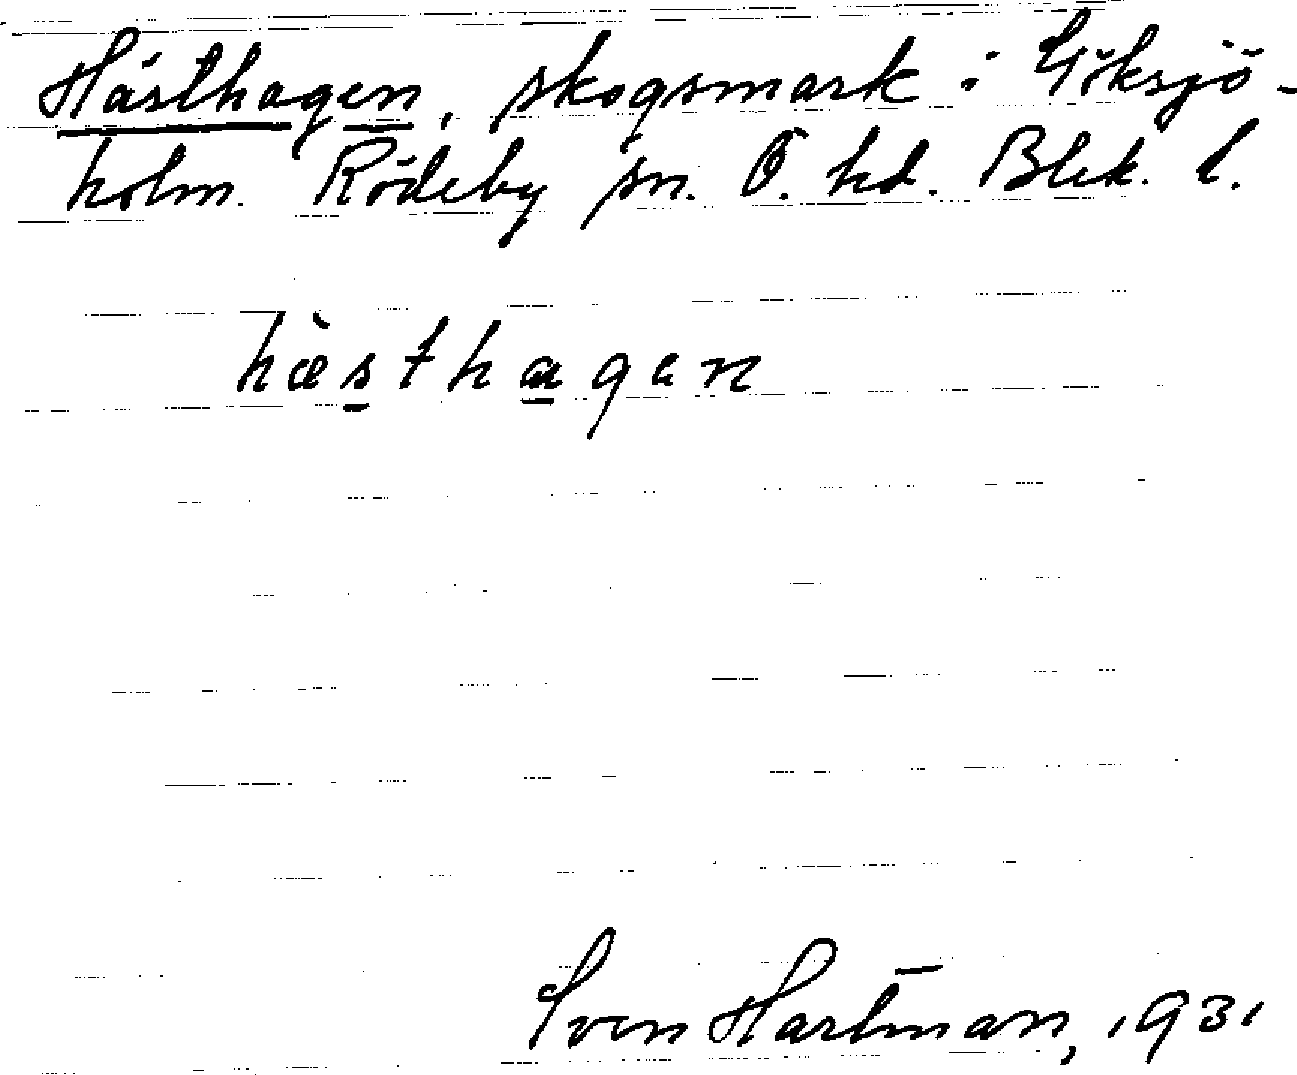 Hästhagen, skogsmark i Göksjö-
holm. Rödeby sn. Ö. hd. Blek. l.
hæ̀sthagen
Sven Hartman, 1931